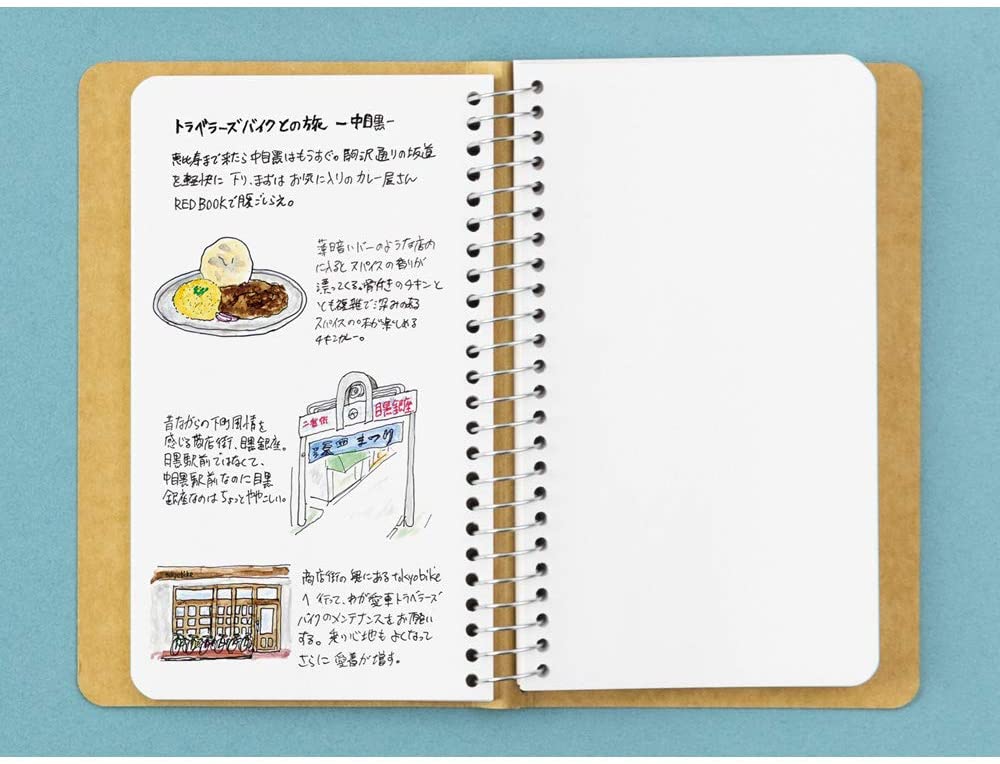 トラベラーズバイクとの旅 ー中目黒ー
恵比寿まで来たら中目黒はもうすぐ。駒沢通りの坂道
を軽快に下り、まずはお気に入りのカレー屋さん
RED BOOKで腹ごしらえ。
薄暗いバーのような店内
に入るとスパイスの香りが
漂ってくる。骨付きのチキンと
とも複雑で深みのある
スパイスの味が楽しめる
チキンカレー。
昔ながらの下町風情を
感じる商店街、目黒銀座。
目黒駅前ではなくて、
中目黒駅前なのに目黒
銀座なのはちょっとややこしい。
二番街
目黒銀座
まつり
tokyobike
商店街の奥にあるtokyobike
へ行って、わが愛車トラベラーズ
バイクのメンテナンスをお願い
する。乗り心地もよくなって
さらに愛着が増す。